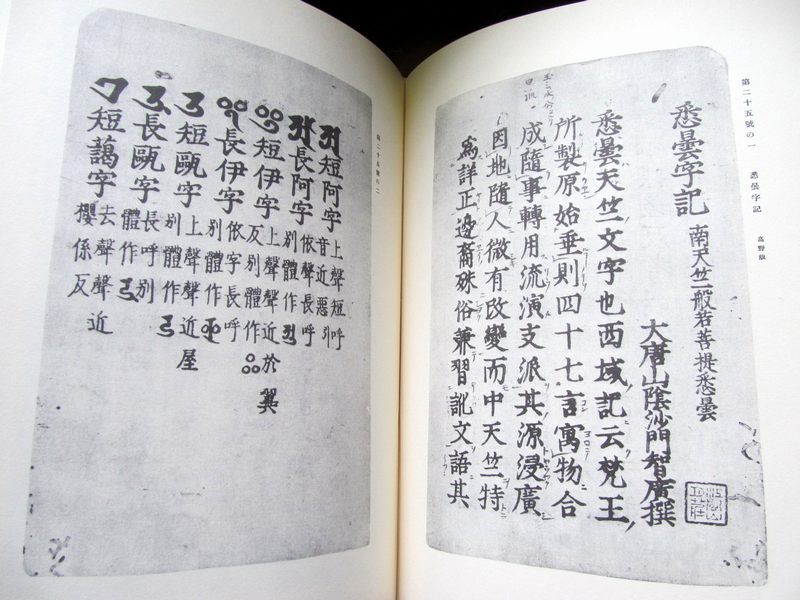 第二十五號の一 悉曇字記 高野版
悉曇字記 南天竺般若菩提悉曇
大唐山陰沙門智廣撰
悉曇天竺文字也西域記云梵王
所製原始垂則四十七言寓物合
成隨事轉用流演支派其源浸廣
因地隨人微有改變而中天竺特
爲詳正邊裔殊俗兼習訛文語其
第二十五號の二
短阿字 上聲短呼音近惡引
長阿字 依聲長呼別體作
短伊字 上聲聲近於翼反別體作
長伊字 依字長呼別體作
短甌字 上聲聲近屋別體作
長甌字 長呼別體作
短藹字 去聲聲近櫻係反